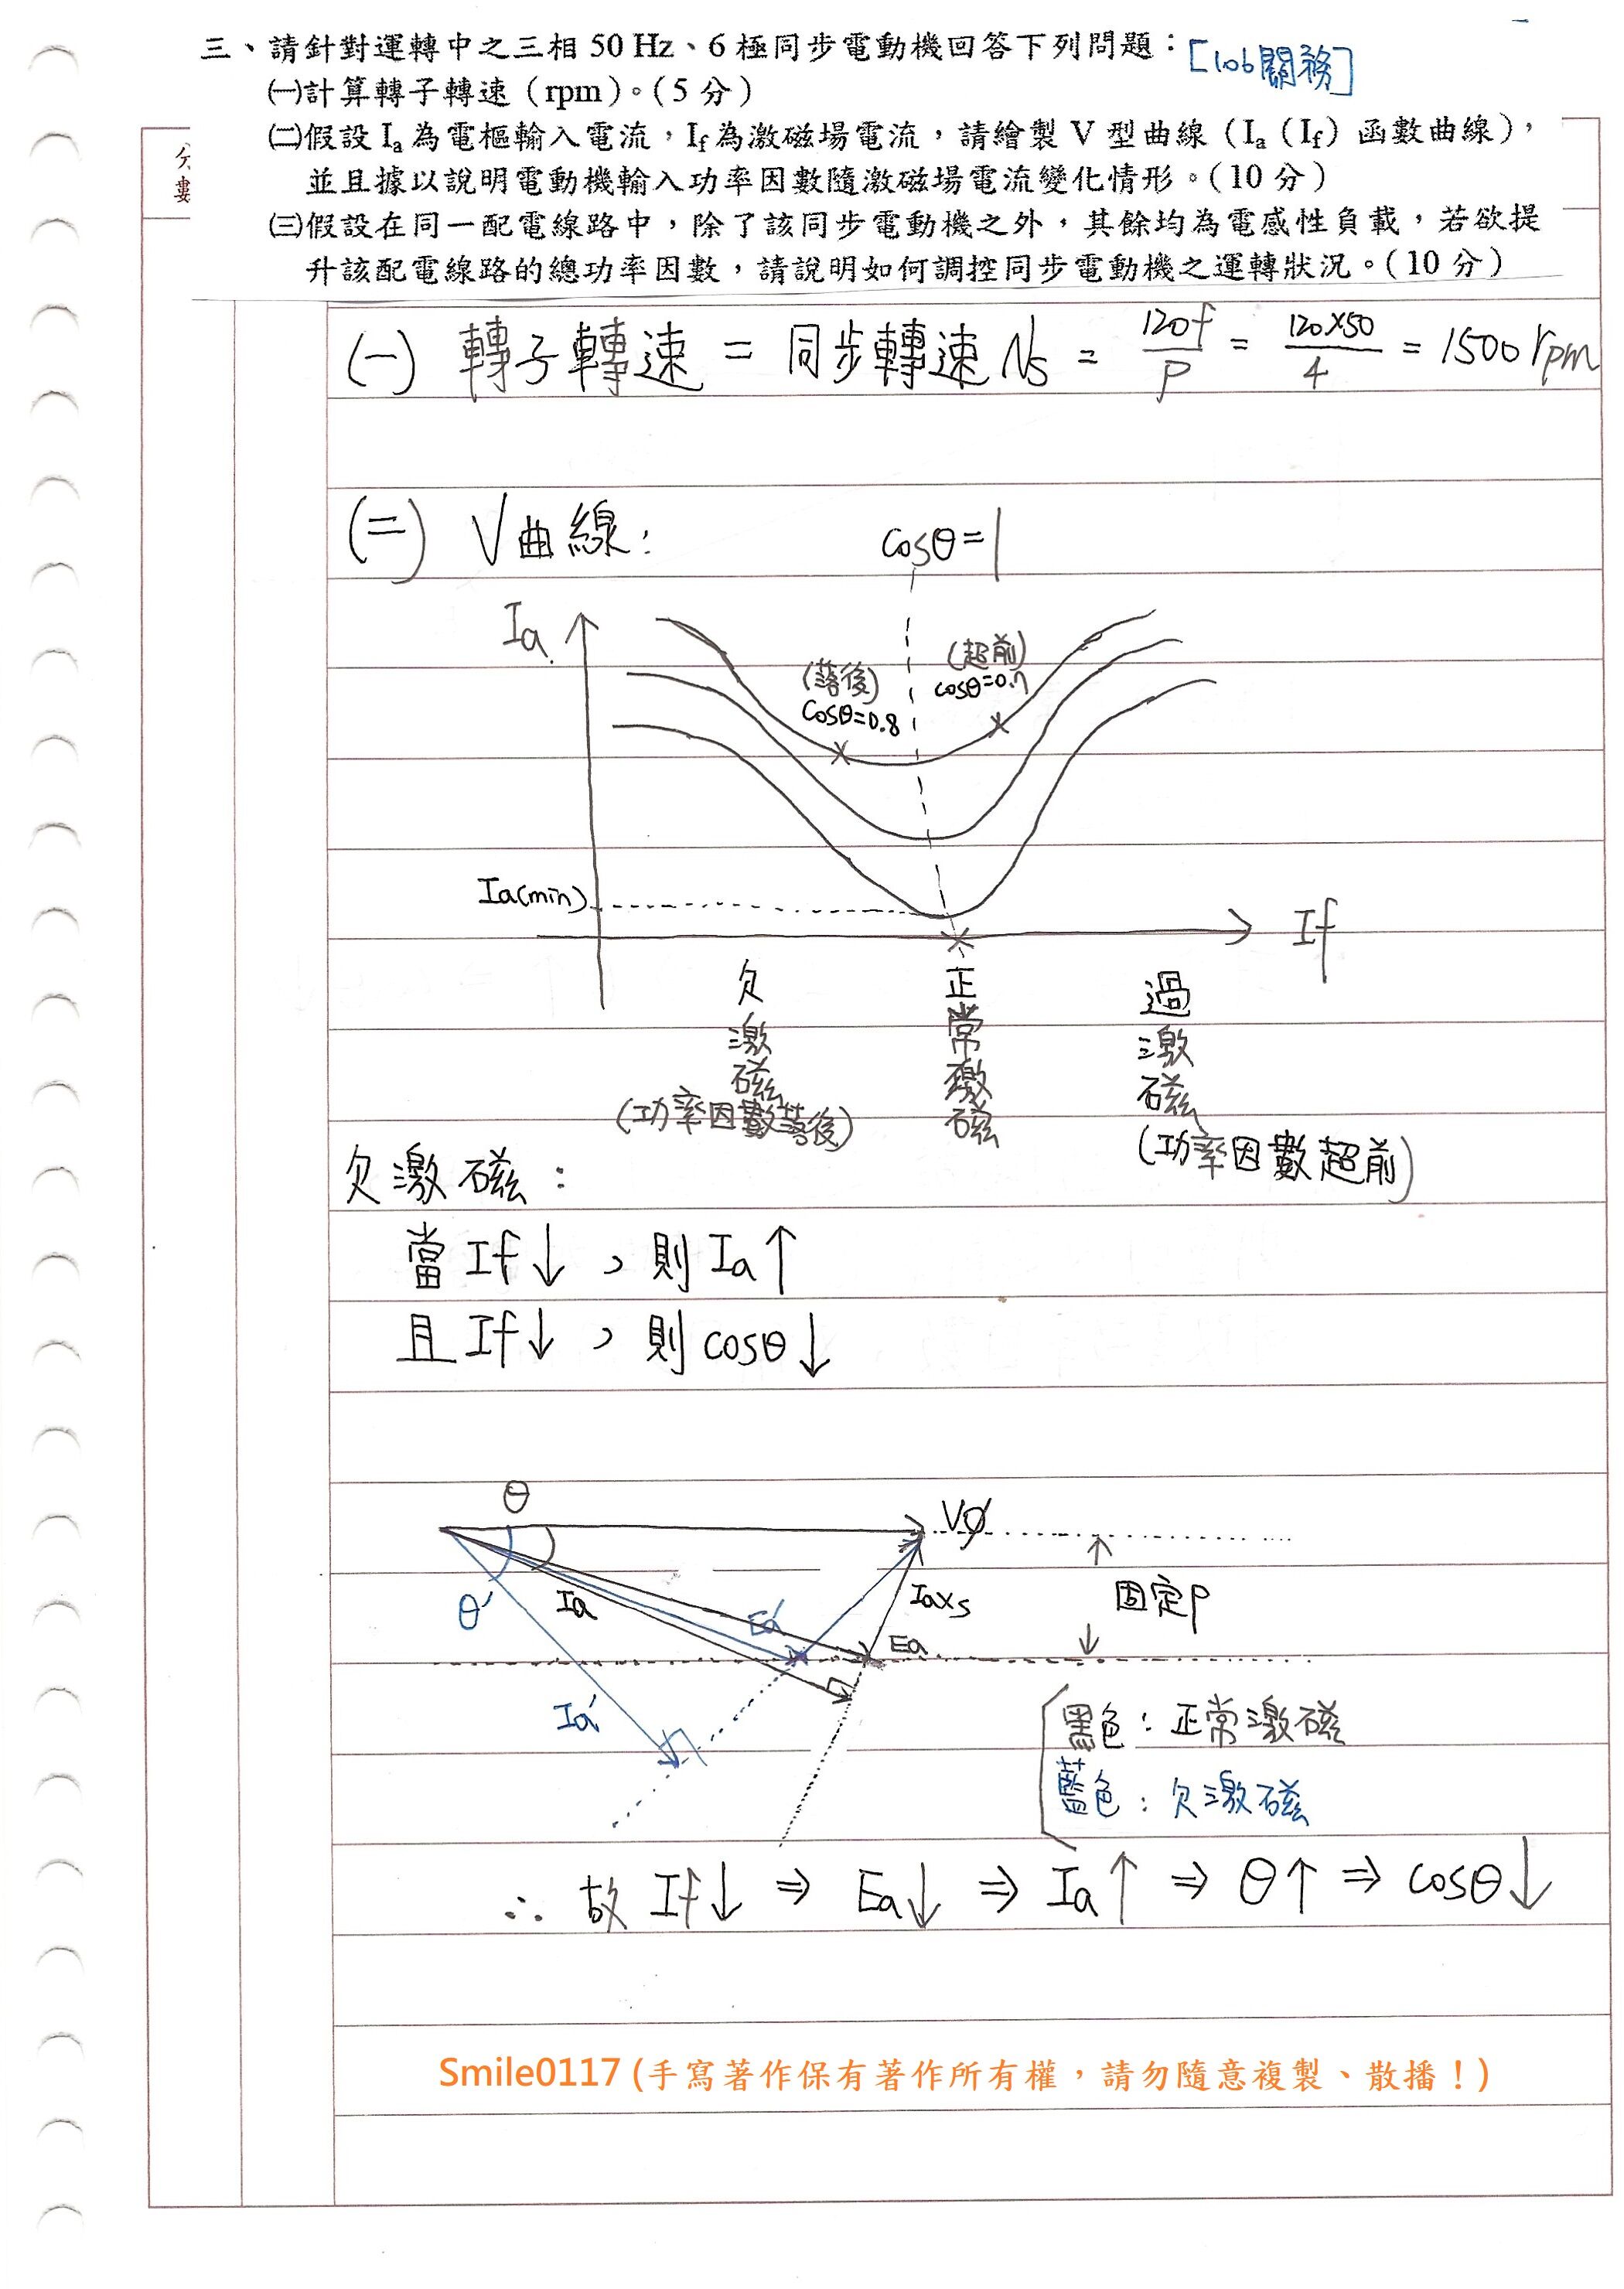 三、請針對運轉中之三相 50 Hz、6 極同步電動機回答下列問題：[106關務]
㈠計算轉子轉速（rpm）。（5 分）
㈡假設 Ia 為電樞輸入電流，If 為激磁場電流，請繪製 V 型曲線（Ia（If）函數曲線），
並且據以說明電動機輸入功率因數隨激磁場電流變化情形。（10 分）
㈢假設在同一配電線路中，除了該同步電動機之外，其餘均為電感性負載，若欲提
升該配電線路的總功率因數，請說明如何調控同步電動機之運轉狀況。（10 分）
(一) 轉子轉速 = 同步轉速 Ns = 120f/P = 120×50/4 = 1500 rpm
(二) V曲線：
cosθ=1
Ia
(落後)
cosθ=0.8
(超前)
cosθ=0.7
Ia(min)
If
欠激磁
(功率因數落後)
正常激磁
過激磁
(功率因數超前)
欠激磁：
當 If↓，則 Ia↑
且 If↓，則 cosθ↓
θ
Vφ
θ'
Ia
Ea'
IaXs
Ea
固定P
Ia'
黑色：正常激磁
藍色：欠激磁
∴ 故 If↓ ⇒ Ea↓ ⇒ Ia↑ ⇒ θ↑ ⇒ cosθ↓
Smile0117 (手寫著作保有著作所有權，請勿隨意複製、散播！)